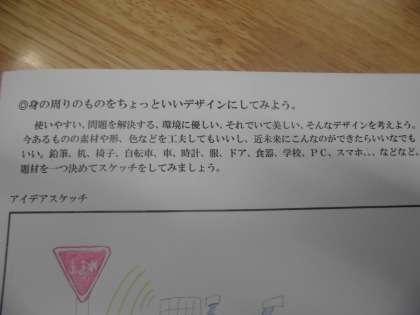 ◎身の周りのものをちょっといいデザインにしてみよう。
使いやすい、問題を解決する、環境に優しい、それでいて美しい、そんなデザインを考えよう。
今あるものの素材や形、色などを工夫してもいいし、近未来にこんなのができたらいいなでも
いい。鉛筆、机、椅子、自転車、車、時計、服、ドア、食器、学校、PC、スマホ、、、などなど、
題材を一つ決めてスケッチをしてみましょう。
アイデアスケッチ
止まれ